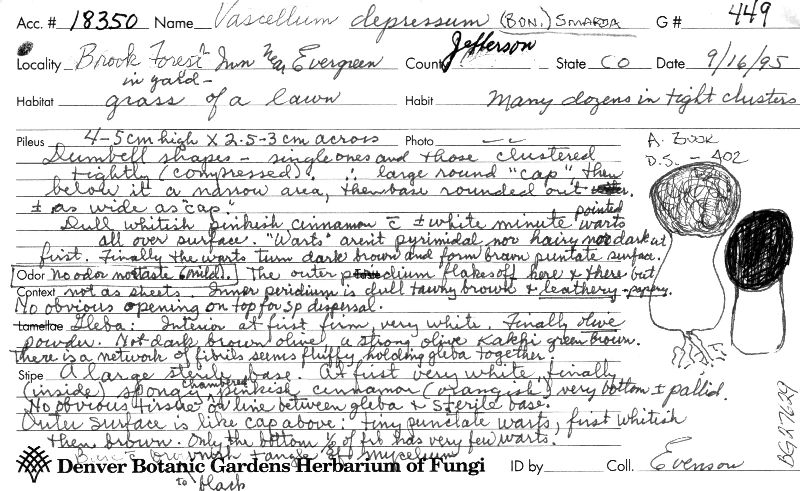 Acc. # 18350 Name Vascellum depressum (Bon.) Smarda G # 449
Locality Brook Forest Inn near Evergreen County Jefferson State CO Date 9/16/95
in yard -
Habitat grass of a lawn Habit Many dozens in tight clusters
Pileus 4-5cm high x 2.5-3 cm across Photo --
A. Book
D.S. - 402
Dumbell shapes - single ones and those clustered
tightly (compressed). ∴ large round "cap" then
below it a narrow area, then base rounded out
± as wide as "cap".
Dull whitish pinkish cinnamon c̄ ± white minute pointed warts
all over surface. "Warts" aren't pyrimidal nor hairy nor dark at
first. Finally the warts turn dark brown and form brown punctate surface.
Odor No odor nor taste (mild). The outer peridium flakes off here & there but
Context not as sheets. Inner peridium is dull tawny brown & leathery - papery.
No obvious opening on top for sp dispersal.
Lamellae Gleba: Interior at first firm, very white. Finally olive
powder. Not dark brown olive, a strong olive kakhi green brown.
There is a network of fibrils seems fluffy, holding gleba together.
Stipe A large sterile base. At first very white, finally
(inside) spongy chambered pinkish cinnamon (orangish) very bottom ± pallid.
No obvious tissue or line between gleba & sterile base.
Outer surface is like cap above: tiny punctate warts, first whitish
then brown. Only the bottom ⅓ of frb has very few warts.
Base c̄ brownish tangle of mycelium
to black
Denver Botanic Gardens Herbarium of Fungi ID by Coll. Evenson
BG27629